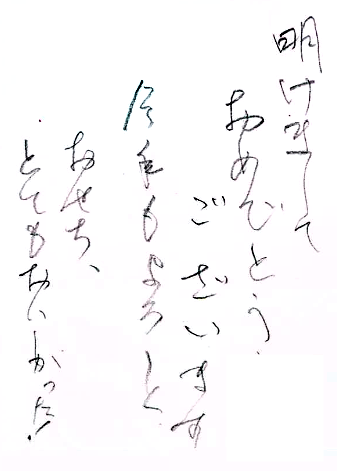 明けまして
おめでとう
ございます
今年もよろしく
おせち、
とてもおいしかった!